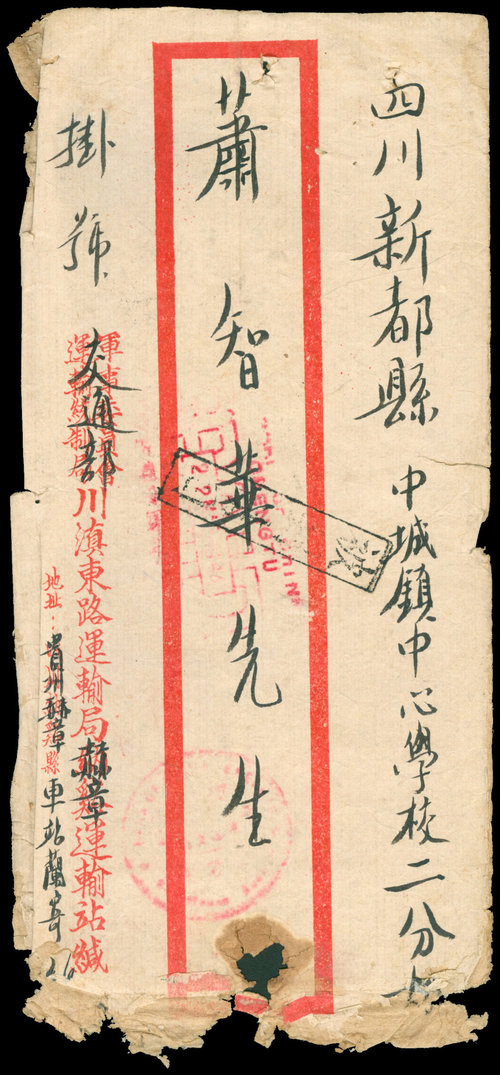 四川新都縣 中城鎮中心學校二分
蕭智華先生
掛號
軍事委員會
運輸統制局
交通部
川滇東路運輸局赫章運輸站緘
地址：貴州赫章縣車站蘭寄